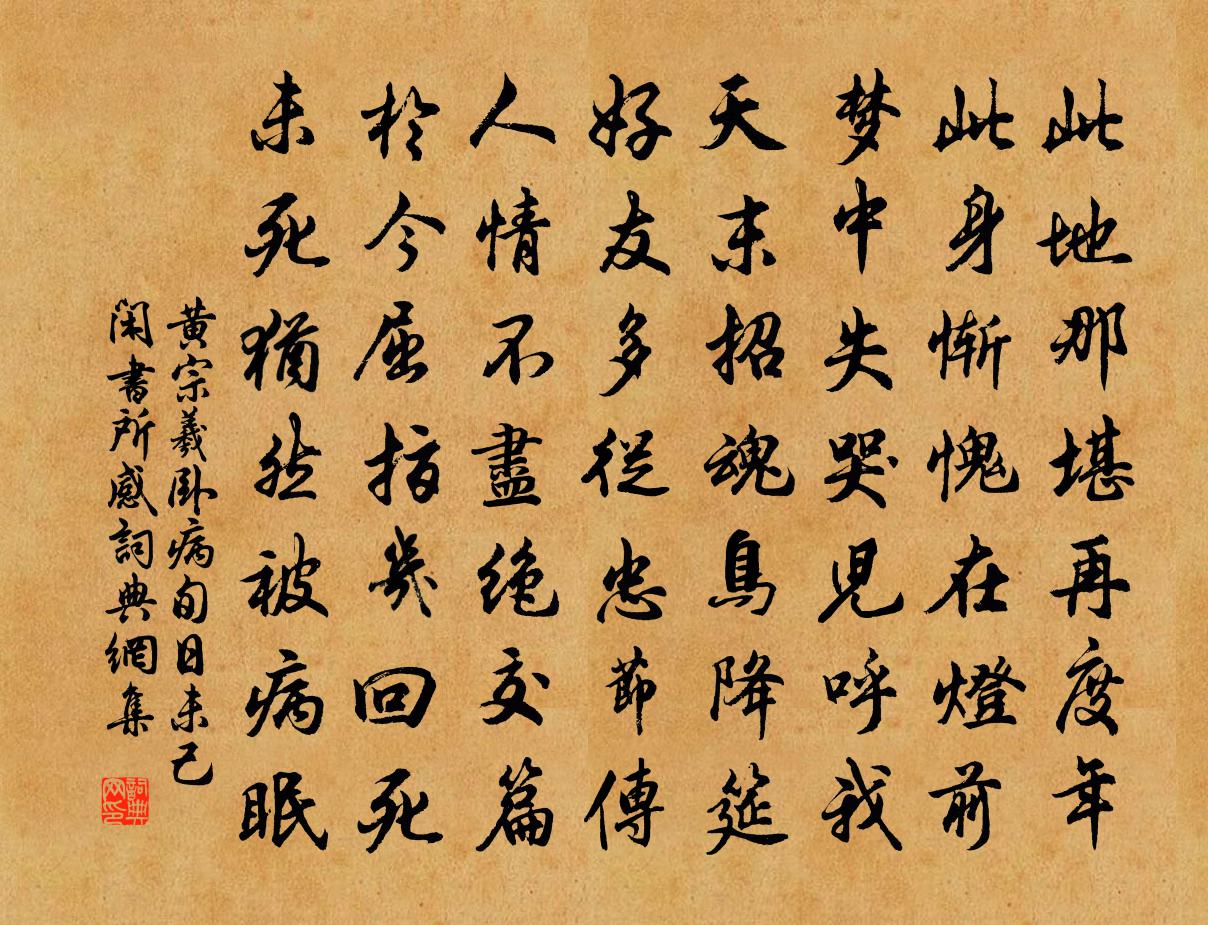 此地那堪再度年
此身惭愧在燈前
梦中失哭兒呼我
天末招魂鳥降筵
好友多從忠節傳
人情不盡绝交篇
於今屈指幾回死
未死猶然被病眠
黄宗羲卧病旬日未己
闲書所感詞典網集
詞典網印